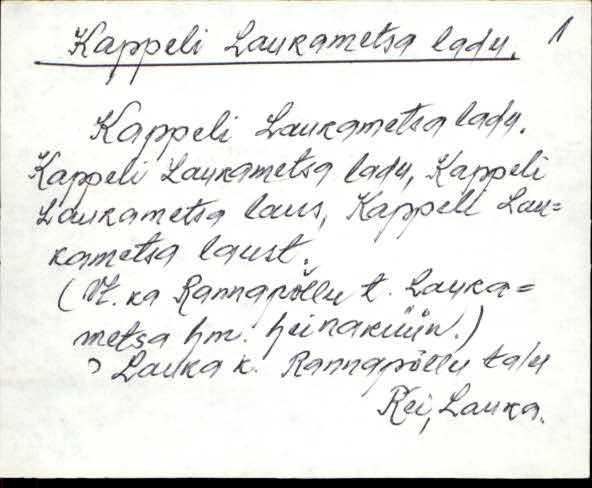 Kappeli Laukametsa ladu. 1
Kappeli Laukametsa ladu.
Kappeli Laukametsa ladu, Kappeli
Laukametsa laus, Kappeli Lau=
kametsa laust.
(Vt. ka Rannapõllu t. Lauka=
metsa hm. heinaküün.)
Lauka k. Rannapõllu talu
Rei, Lauka.